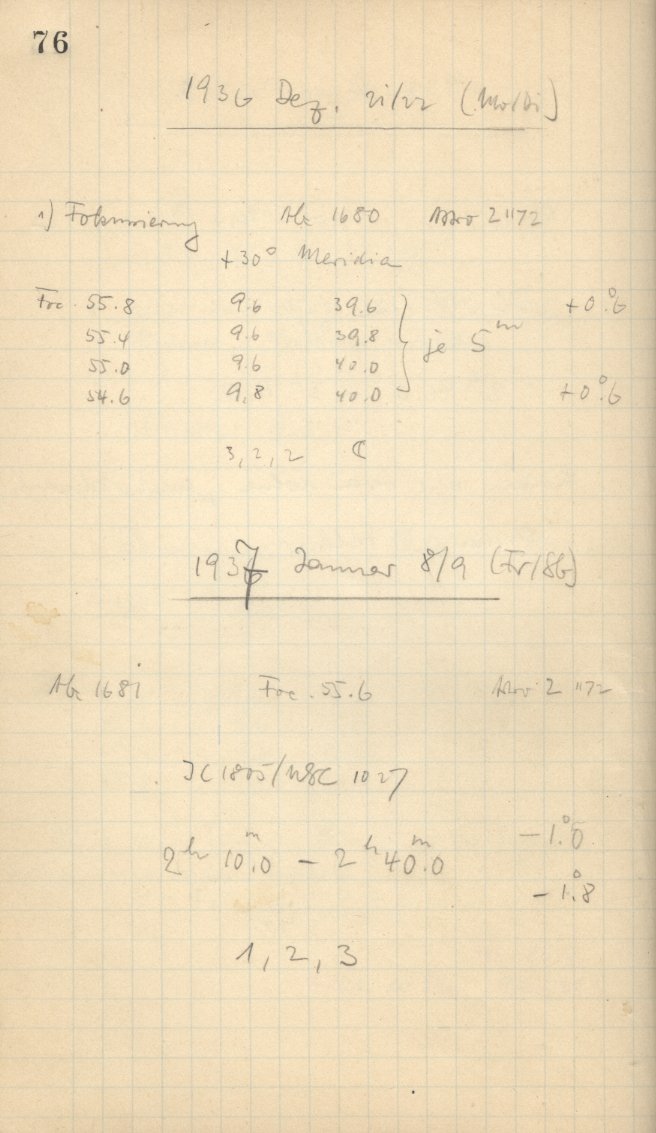 76
1936 Dez. 21/22 (Mo/Di)
1) Fokussierung Ab 1680 Astro 2 "72
+30° Meridian
Foc. 55.8 9.6 39.6 +0°.6
55.4 9.6 39.8 je 5m
55.0 9.6 40.0
54.6 9.8 40.0 +0°.6
3, 2, 2 ☾
1937 Januar 8/9 (Fr/Sb)
1681 Foc. 55.6 Astro 2 "72
JC 1805/NGC 1027
2h 10m.0 – 2h 40m.0 –1°.5
–1°.8
1, 2, 3